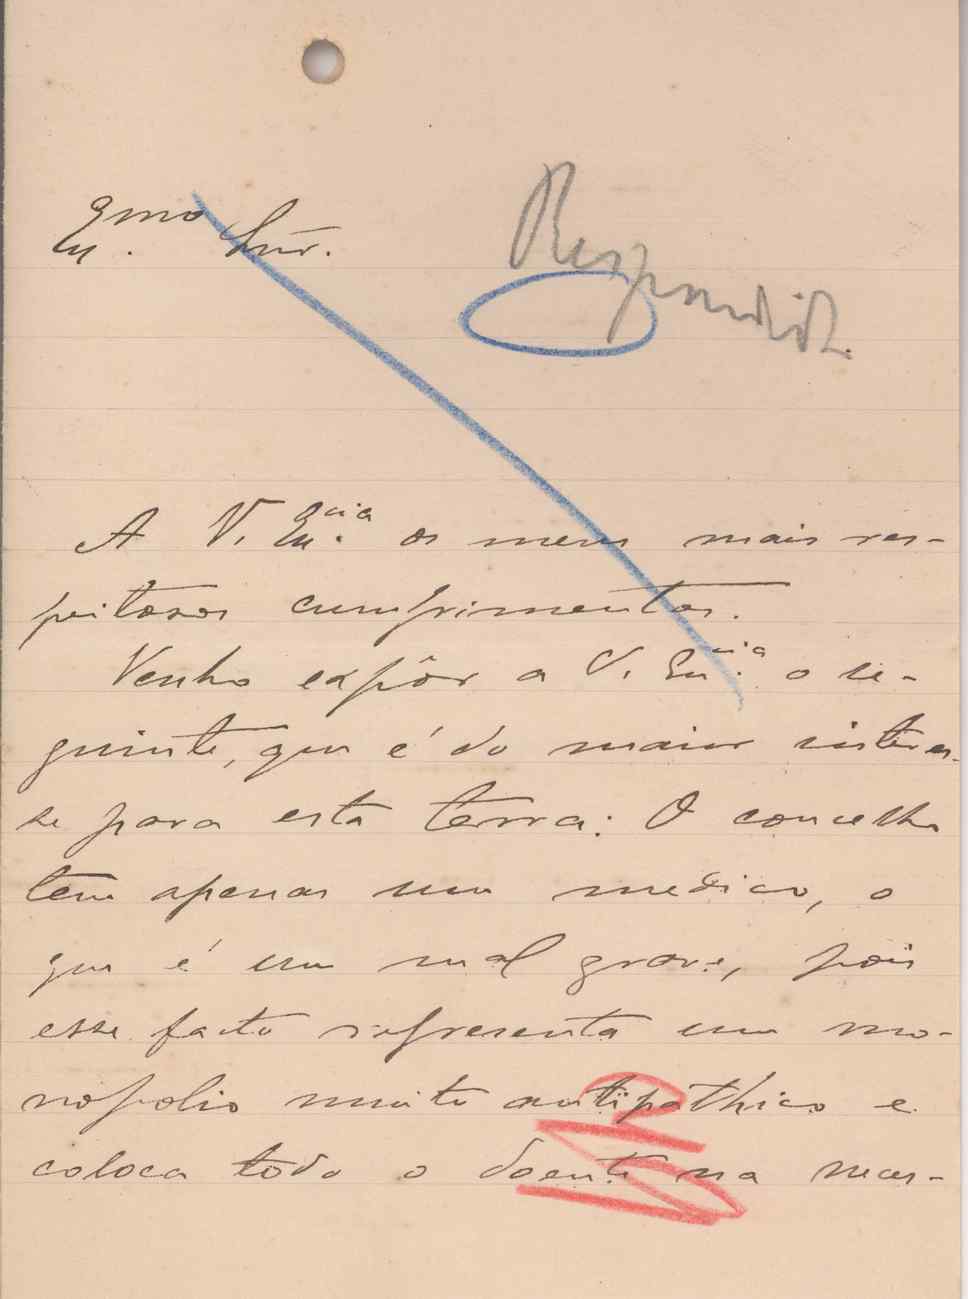 Exmo Snr.
Respondida
A V. Ex.cia os meus mais res-
peitosos cumprimentos.
Venho expôr a V. Ex.cia o se-
guinte, que é do maior interes-
se para esta terra: O concelho
tem apenas um medico, o
que é um mal grave, pois
esse facto representa um mo-
nopolio muito antipathico e
coloca todo o doente na neces-